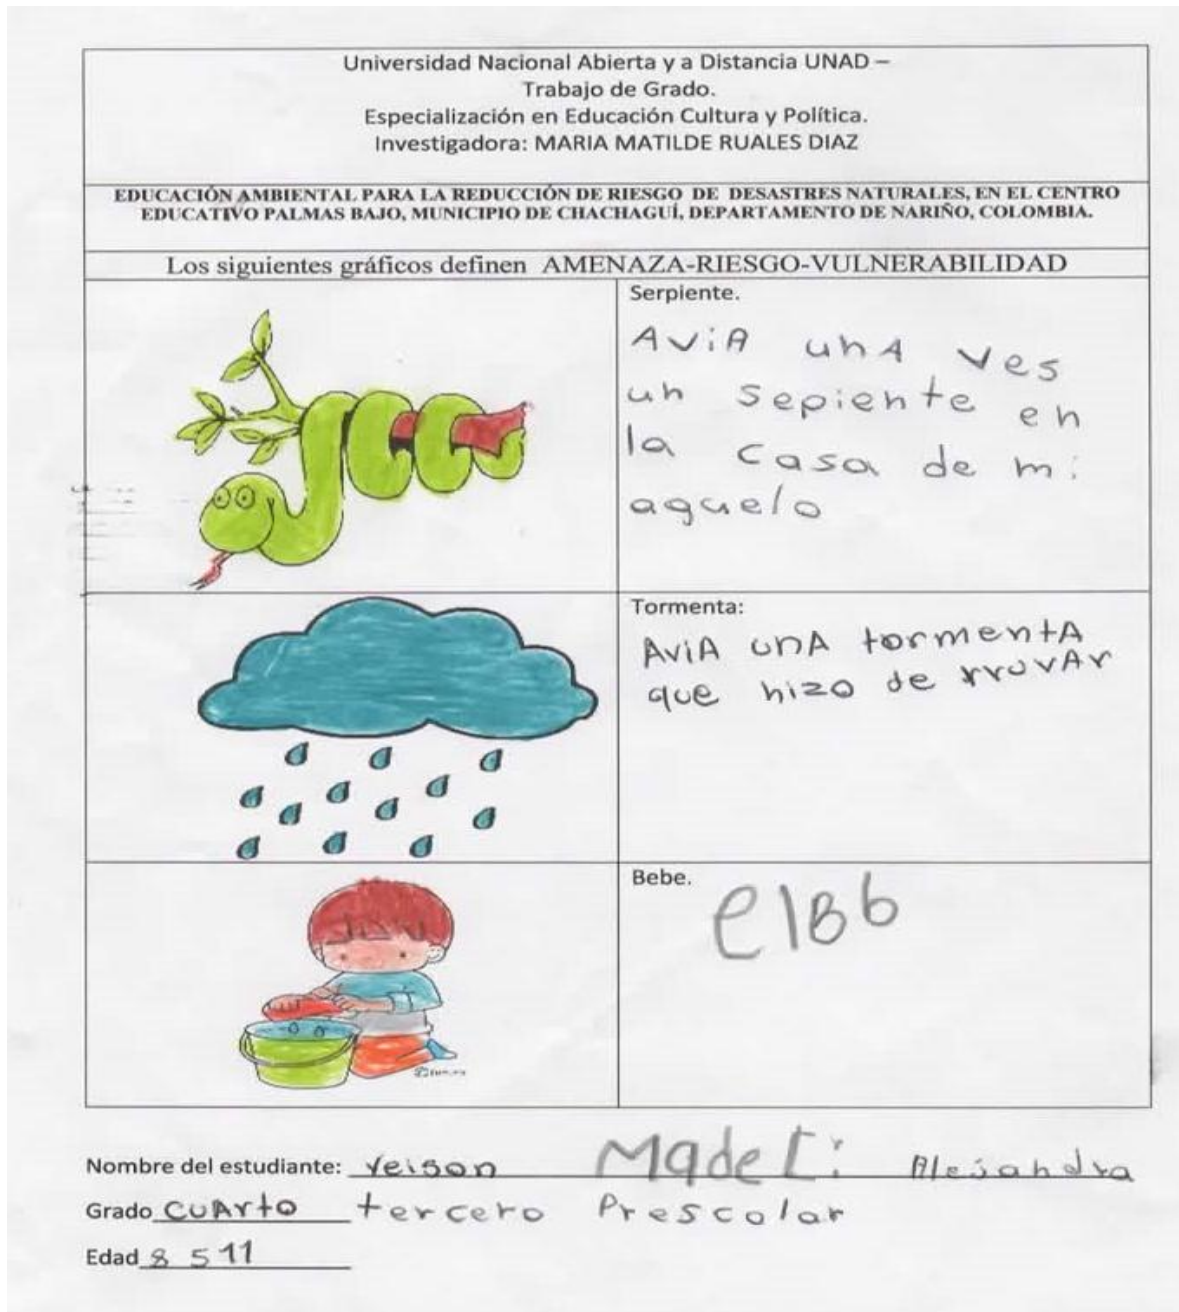 Universidad Nacional Abierta y a Distancia UNAD –
Trabajo de Grado.
Especialización en Educación Cultura y Política.
Investigadora: MARIA MATILDE RUALES DIAZ
EDUCACIÓN AMBIENTAL PARA LA REDUCCIÓN DE RIESGO DE DESASTRES NATURALES, EN EL CENTRO
EDUCATIVO PALMAS BAJO, MUNICIPIO DE CHACHAGUÍ, DEPARTAMENTO DE NARIÑO, COLOMBIA.
Los siguientes gráficos definen AMENAZA-RIESGO-VULNERABILIDAD
Serpiente.
AviA unA ves
un sepiente en
la casa de mi
aguelo
Tormenta:
AviA unA tormentA
que hizo de rruvAr
Bebe.
elBb
Nombre del estudiante: Yeison Madeli Alejandra
Grado cuArto tercero Prescolar
Edad 8 5 11